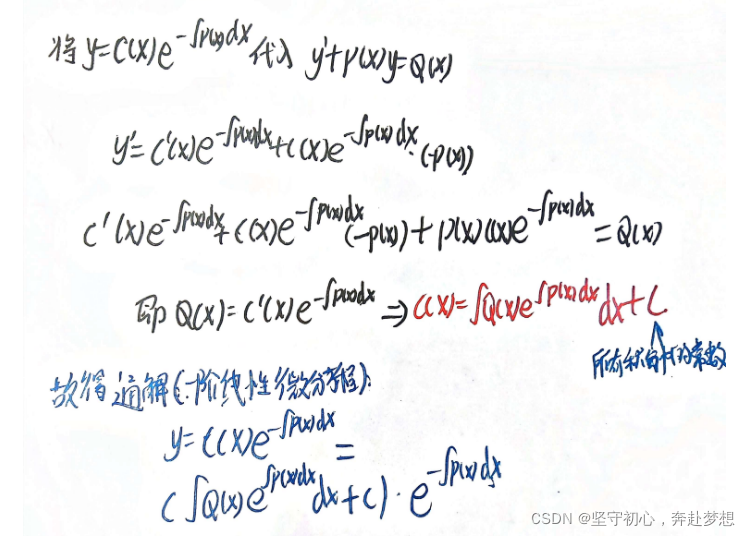 将 y=C(x)e^{-∫p(x)dx} 代入 y'+p(x)y=Q(x)
y'=C'(x)e^{-∫p(x)dx}+C(x)e^{-∫p(x)dx}·(-p(x))
C'(x)e^{-∫p(x)dx}+C(x)e^{-∫p(x)dx}(-p(x))+p(x)C(x)e^{-∫p(x)dx}=Q(x)
即 Q(x)=C'(x)e^{-∫p(x)dx} ⇒ C(x)=∫Q(x)e^{∫p(x)dx}dx+C
所有积分中的常数
故得通解(一阶线性微分方程):
y=C(x)e^{-∫p(x)dx}=
(∫Q(x)e^{∫p(x)dx}dx+C)·e^{-∫p(x)dx}
CSDN @坚守初心，奔赴梦想